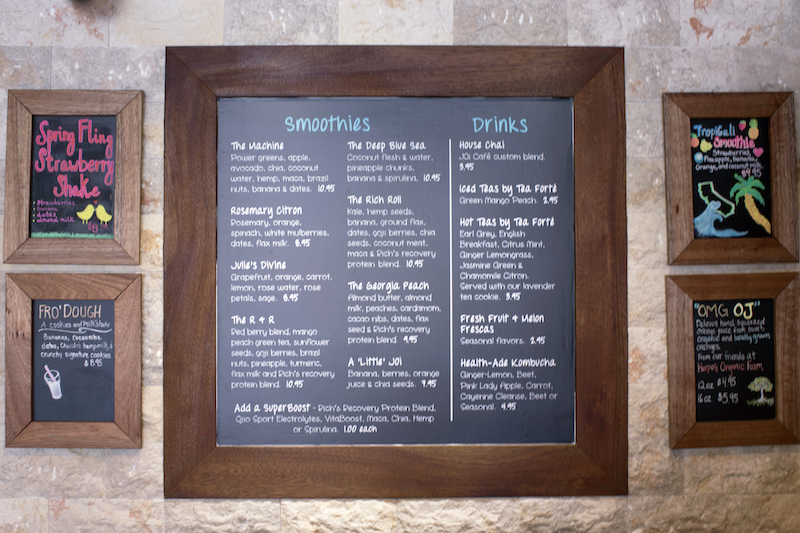 Spring Fling
Strawberry
Shake
• strawberries
• banana
• dates
• almond milk
FRO' DOUGH
A cookies and milkshake
Bananas, Cocoamba,
dates,
crunchy signature cookies
$8.95
Smoothies
The Machine
Power greens, apple,
avocado, chia, coconut
water, hemp, maca, brazil
nuts, banana & dates. 10.95
Rosemary Citron
Rosemary, orange,
spinach, white mulberries,
dates, flax milk. 8.95
Julie's Divine
Grapefruit, orange, carrot,
lemon, rose water, rose
petals, sage. 8.95
The R & R
Red berry blend, mango
peach green tea, sunflower
seeds, goji berries, brazil
nuts, pineapple, turmeric,
flax milk and Rich's recovery
protein blend. 10.95
The Deep Blue Sea
Coconut flesh & water,
pineapple chunks,
banana & spirulina. 10.95
The Rich Roll
Kale, hemp seeds,
banana, ground flax,
dates, goji berries, chia
seeds, coconut meat,
maca & Rich's recovery
protein blend. 10.95
The Georgia Peach
Almond butter, almond
milk, peaches, cardamom,
cacao nibs, dates, flax
seed & Rich's recovery
protein blend. 9.95
A 'Little' JOi
Banana, berries, orange
juice & chia seeds. 9.95
Add a SuperBoost - Rich's Recovery Protein Blend,
Q10 Sport Electrolytes, VitaBoost, Maca, Chia, Hemp
or Spirulina. 1.00 each
Drinks
House Chai
JOi Café custom blend.
3.95
Iced Teas by Tea Forté
Green Mango Peach. 2.95
Hot Teas by Tea Forté
Earl Grey, English
Breakfast, Citrus Mint,
Ginger Lemongrass,
Jasmine Green &
Chamomile Citron.
Served with our lavender
tea cookie. 3.95
Fresh Fruit & Melon
Frescas
Seasonal flavors. 2.95
Health-Ade Kombucha
Ginger-Lemon, Beet,
Pink Lady Apple, Carrot,
Cayenne Cleanse, Beet or
Seasonal. 4.95
Tropicali
Smoothie
Strawberries,
Pineapple, banana,
Orange, and coconut milk
$9.95
"OMG OJ"
Delicious hand squeezed
orange juice from sweet,
organic and locally grown
oranges.
From our friends at
Organic Farm
12 oz $4.95
16 oz $5.95